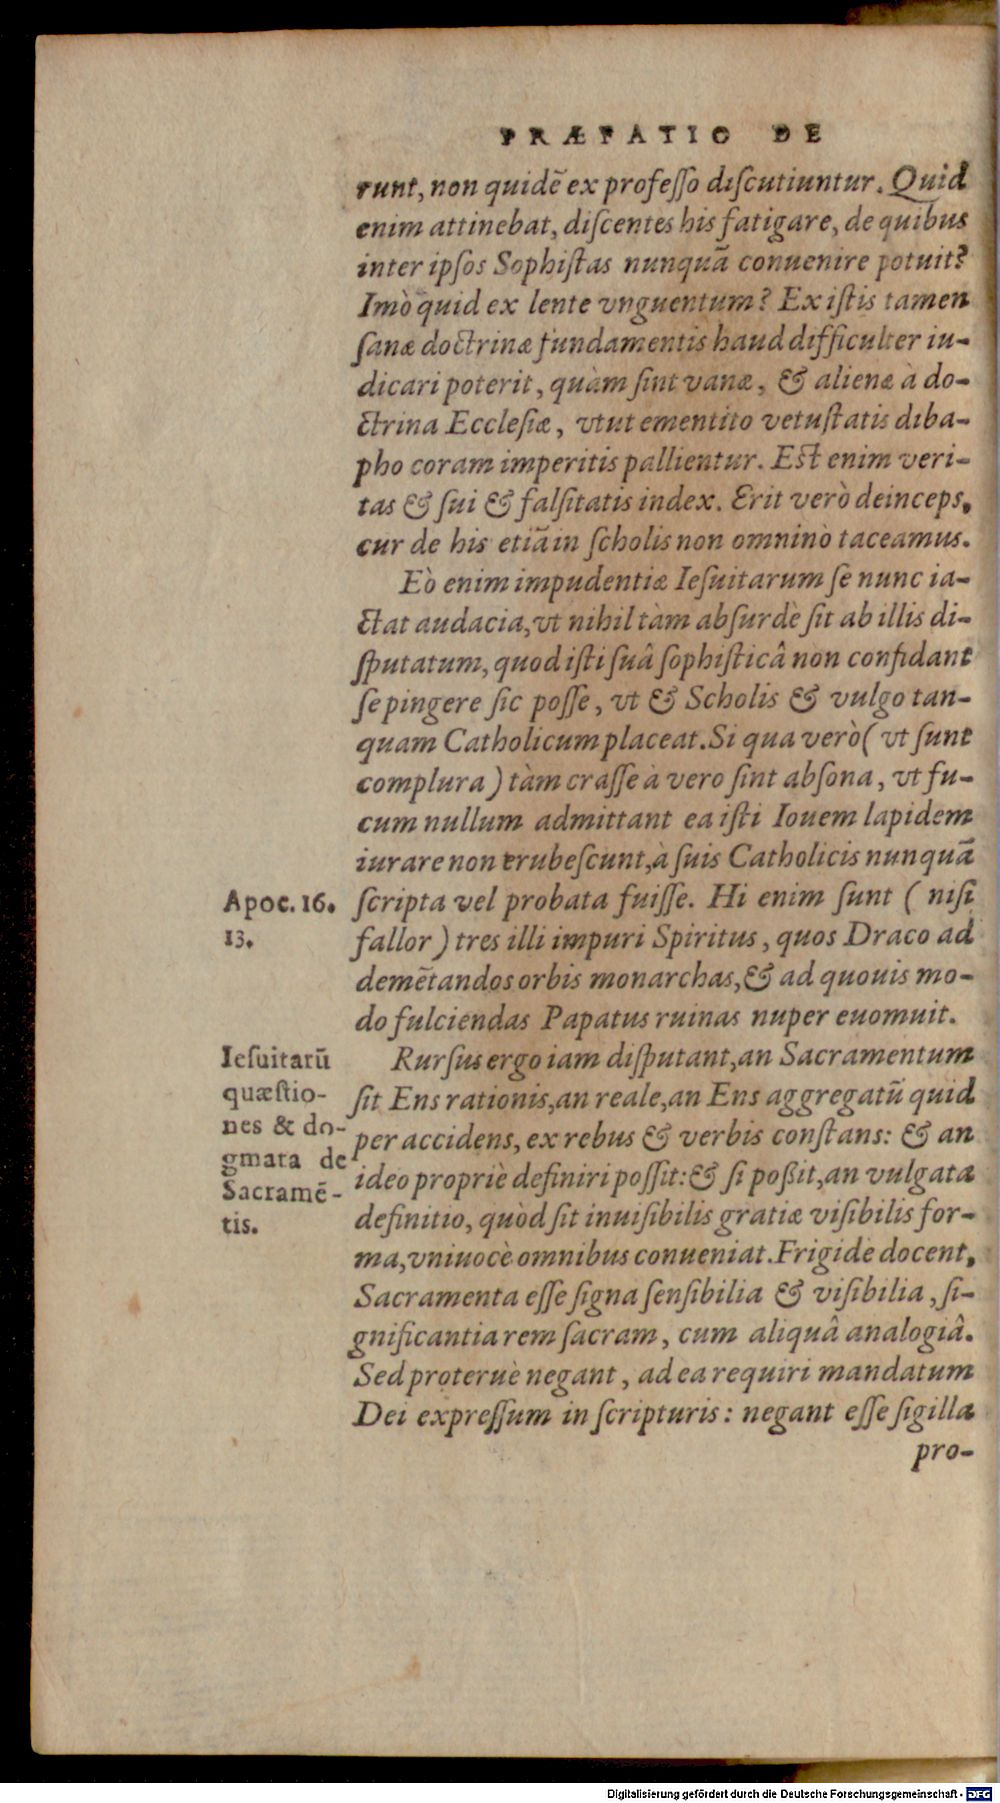 PRÆFATIO DE
runt, non quidē ex professo discutiuntur. Quid
enim attinebat, discentes his fatigare, de quibus
inter ipsos Sophistas nunquā conuenire potuit?
Imò quid ex lente vnguentum? Ex istis tamen
sanæ doctrinæ fundamentis haud difficulter iu-
dicari poterit, quàm sint vanæ, & alienæ à do-
ctrina Ecclesiæ, vtut ementito vetustatis diba-
pho coram imperitis pallientur. Est enim veri-
tas & sui & falsitatis index. Erit verò deinceps,
cur de his etiā in scholis non omninò taceamus.
Eò enim impudentiæ Iesuitarum se nunc ia-
ctat audacia, vt nihil tàm absurdè sit ab illis di-
sputatum, quod isti suâ sophisticâ non confidant
se pingere sic posse, vt & Scholis & vulgo tan-
quam Catholicum placeat. Si qua verò (vt sunt
complura) tàm crasse à vero sint absona, vt fu-
cum nullum admittant ea isti Iouem lapidem
iurare non erubescunt, à suis Catholicis nunquā
Apoc. 16.
13.
scripta vel probata fuisse. Hi enim sunt (nisi
fallor) tres illi impuri Spiritus, quos Draco ad
demētandos orbis monarchas, & ad quouis mo-
do fulciendas Papatus ruinas nuper euomuit.
Iesuitarū
quæstio-
nes & do-
gmata de
Sacramē-
tis.
Rursus ergo iam disputant, an Sacramentum
sit Ens rationis, an reale, an Ens aggregatū quid
per accidens, ex rebus & verbis constans: & an
ideo propriè definiri possit: & si poßit, an vulgata
definitio, quòd sit inuisibilis gratiæ visibilis for-
ma, vniuocè omnibus conueniat. Frigide docent,
Sacramenta esse signa sensibilia & visibilia, si-
gnificantia rem sacram, cum aliquâ analogiâ.
Sed proteruè negant, ad ea requiri mandatum
Dei expressum in scripturis: negant esse sigilla
pro-
Digitalisierung gefördert durch die Deutsche Forschungsgemeinschaft - DFG